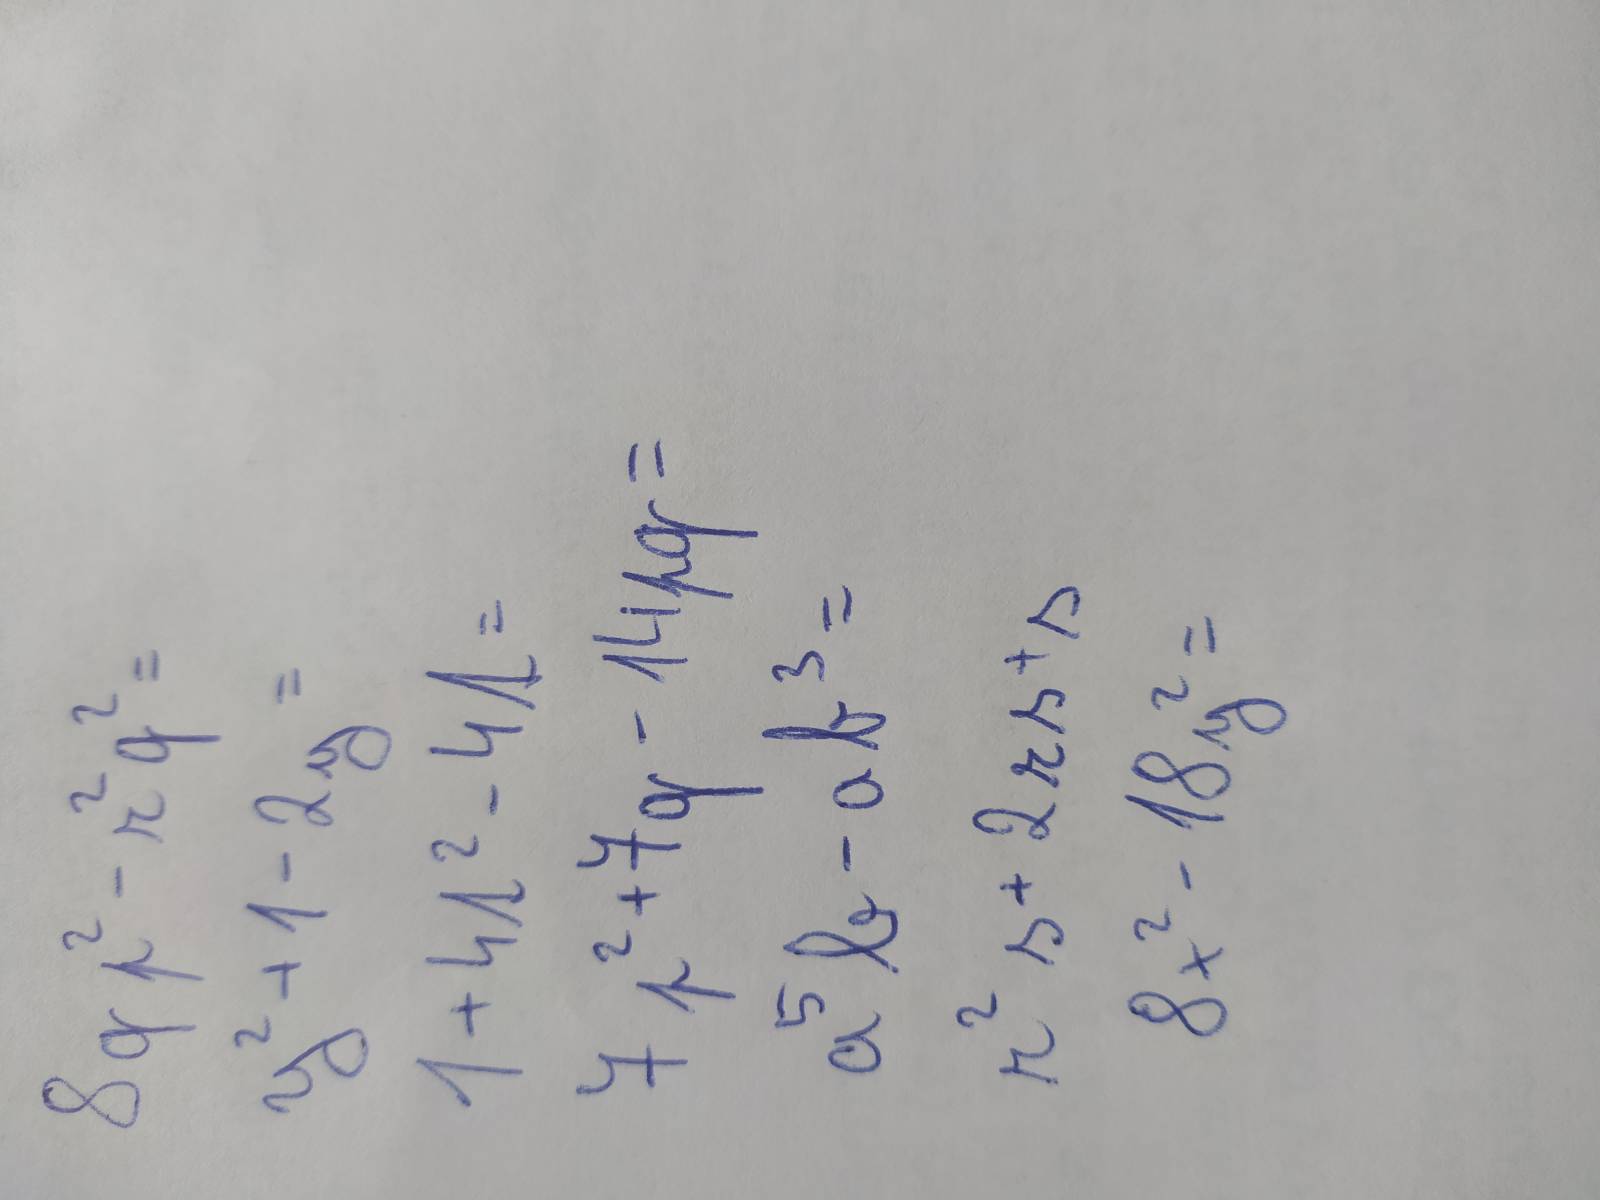 8qp² - r²q² =
y² + 1 - 2y =
1 + 4l² - 4l =
7p² + 7q - 14pq =
a⁵b - ab³ =
r²s + 2rs + s
8x² - 18y² =